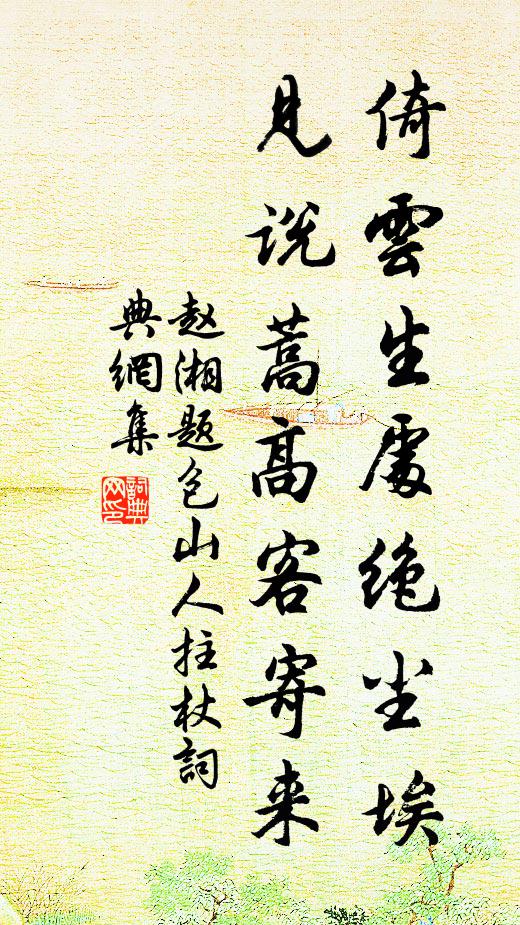 倚雲生處絶尘埃
見说蒿高客寄来
赵湘题包山人拄杖詞
典網集
詞典网印